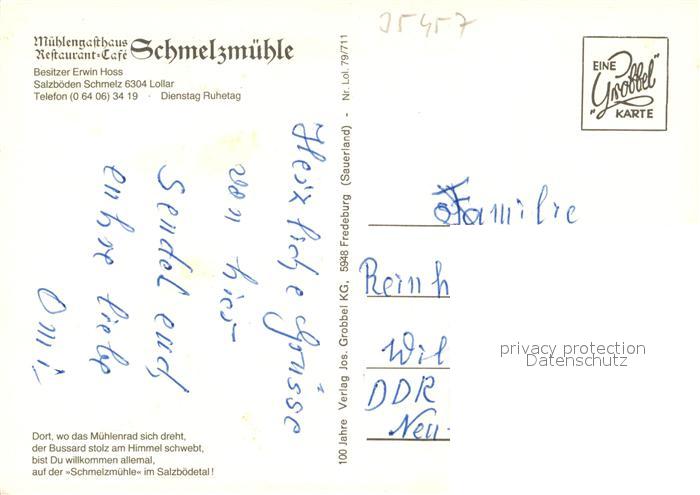 35457
Mühlengasthaus
Restaurant-Café Schmelzmühle
Besitzer Erwin Hoss
Salzböden Schmelz 6304 Lollar
Telefon (0 64 06) 34 19 · Dienstag Ruhetag
EINE
"Grobbel"
KARTE
Herzliche Grüsse
von hier
sendet euch
euhre liebe
Omi!
100 Jahre Verlag Jos. Grobbel KG. 5948 Fredeburg (Sauerland) - Nr. Lol. 79/711
Familie
Reinh
Wil
DDR
Neu
privacy protection
Datenschutz
Dort, wo das Mühlenrad sich dreht,
der Bussard stolz am Himmel schwebt,
bist Du willkommen allemal,
auf der »Schmelzmühle« im Salzbödetal!